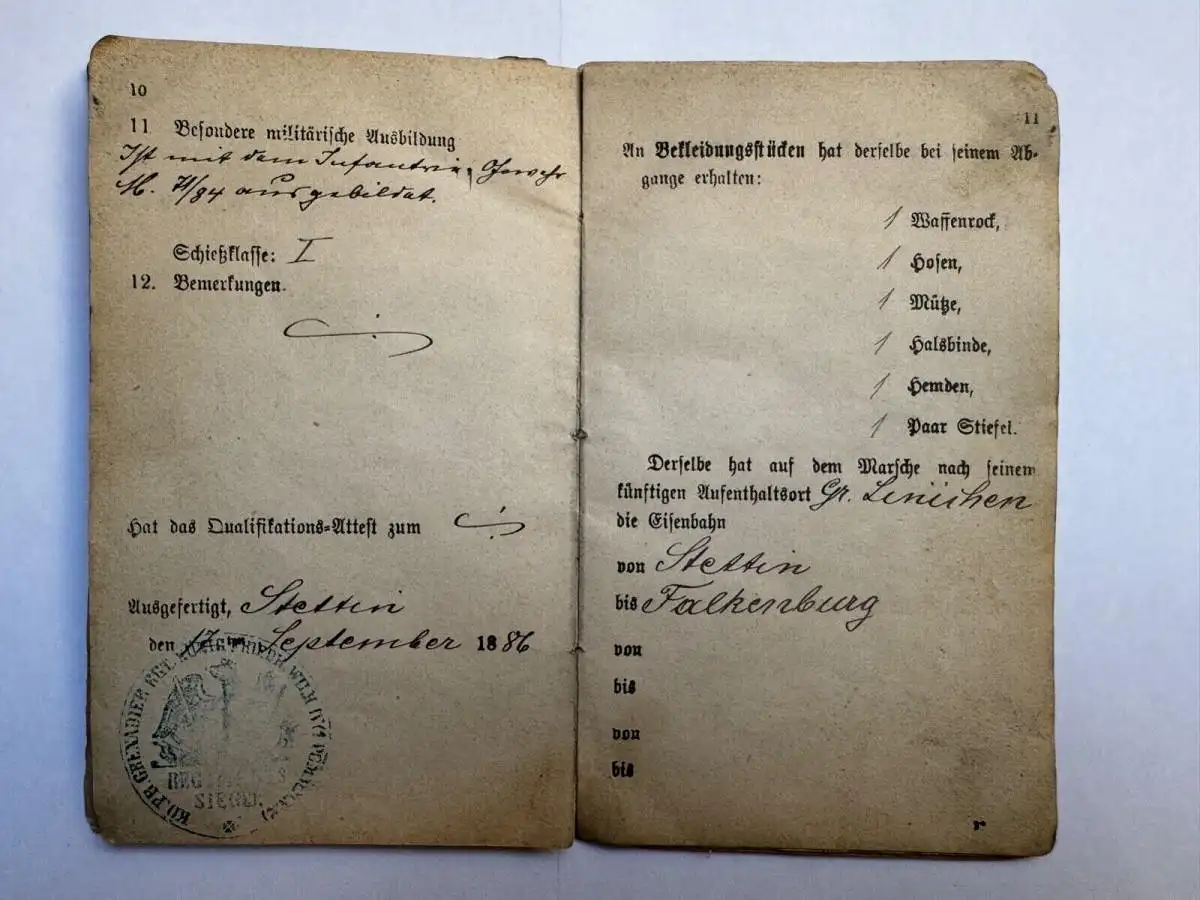 10
11 Besondere militärische Ausbildung
Ist mit dem Infantrie-Gewehr
M. 71/84 ausgebildet.
Schießklasse: I
12. Bemerkungen.
Hat das Qualifikations-Attest zum
Ausgefertigt, Stettin
den 17ten September 1886
KÖ. PR. GRENADIER RGT. KÖNIG FRIEDR. WILH. IV.
SIEGEL
11
An Bekleidungsstücken hat derselbe bei seinem Ab-
gange erhalten:
1 Waffenrock,
1 Hosen,
1 Mütze,
1 Halsbinde,
1 Hemden,
1 Paar Stiefel.
Derselbe hat auf dem Marsche nach seinem
künftigen Aufenthaltsort Gr. Linichen
die Eisenbahn
von Stettin
bis Falkenburg
von
bis
von
bis
r